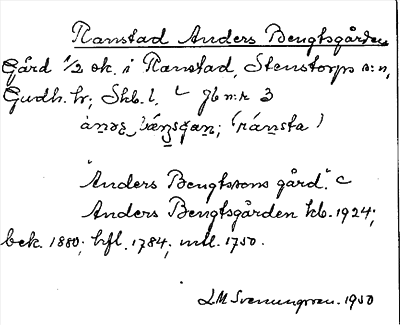 Ranstad Anders Bengtsgården
Gård 1/2 ok. i Ranstad, Stenstorps s:n,
Gudh. hr; Skb. l. Jb n:r 3
(ránsta)
"Anders Bengtssons gård". C
Anders Bengtsgården kb. 1924;
bek. 1880; hfl. 1784; mtl. 1750.
LM Svenungsson. 1950